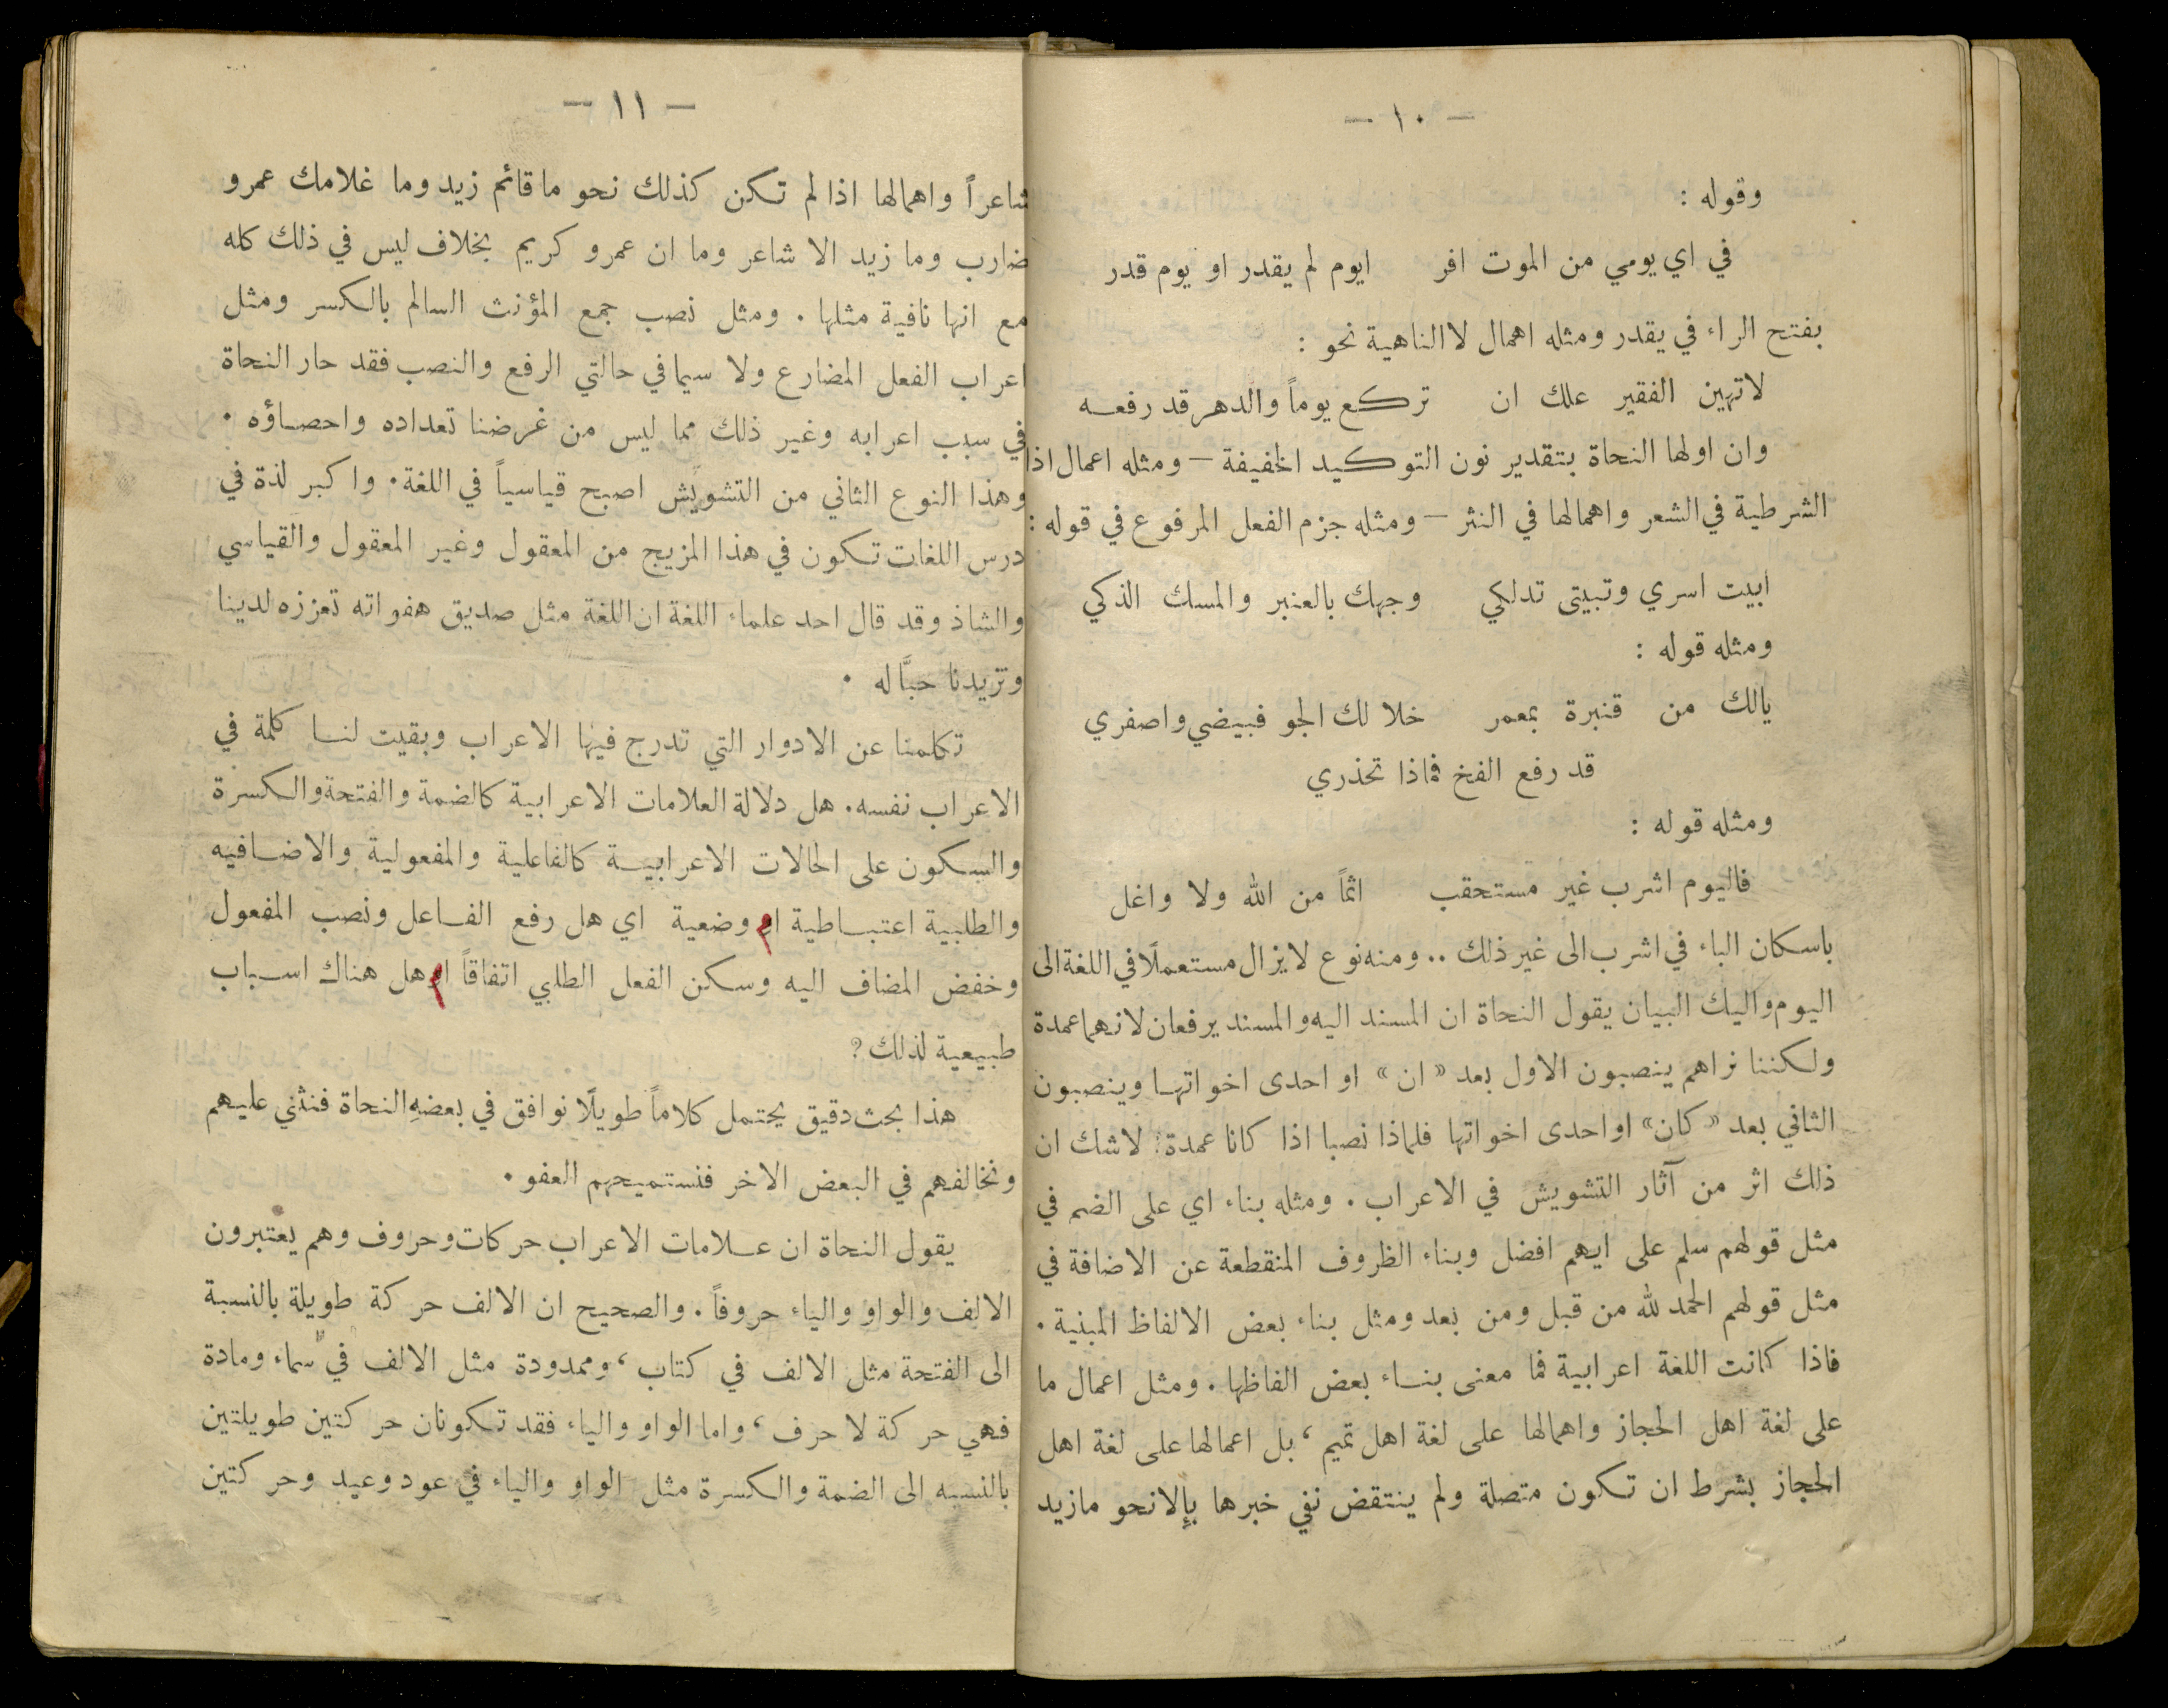 — ١٠ —
وقوله :
في اي يومي من الموت افر ايوم لم يقدر او يوم قدر
بفتح الراء في يقدر ومثله اهمال لا الناهية نحو :
لا تهين الفقير علك ان تركع يوماً والدهر قد رفعه
وان اولها النحاة بتقدير نون التوكيد الخفيفة — ومثله اعمال اذا
الشرطية في الشعر واهمالها في النثر — ومثله جزم الفعل المرفوع في قوله :
ابيت اسري وتبيتى تدلكي وجهك بالعنبر والمسك الذكي
ومثله قوله :
يالك من قنبرة بمعمر خلا لك الجو فبيضي واصفري
قد رفع الفخ فماذا تحذري
ومثله قوله :
فاليوم اشرب غير مستحقب اثماً من الله ولا واغل
باسكان الباء في اشرب الى غير ذلك .. ومنه نوع لا يزال مستعملاً في اللغة الى
اليوم واليك البيان يقول النحاة ان المسند اليه والمسند يرفعان لانهما عمدة
ولكننا نراهم ينصبون الاول بعد « ان » او احدى اخواتها وينصبون
الثاني بعد « كان » او احدى اخواتها فلماذا نصبا اذا كانا عمدة؟ لا شك ان
ذلك اثر من آثار التشويش في الاعراب . ومثله بناء اي على الضم في
مثل قولهم سلم على ايهم افضل وبناء الظروف المنقطعة عن الاضافة في
مثل قولهم الحمد لله من قبل ومن بعد ومثل بناء بعض الالفاظ المبنية .
فاذا كانت اللغة اعرابية فما معنى بناء بعض الفاظها . ومثل اعمال ما
على لغة اهل الحجاز واهمالها على لغة اهل تميم ، بل اعمالها على لغة اهل
الحجاز بشرط ان تكون متصلة ولم ينتقض نفي خبرها بإلا نحو مازيد
— ١١ —
شاعراً واهمالها اذا لم تكن كذلك نحو ما قائم زيد وما غلامك عمرو
ضارب وما زيد الا شاعر وما ان عمرو كريم بخلاف ليس في ذلك كله
مع انها نافية مثلها . ومثل نصب جمع المؤنث السالم بالكسر ومثل
اعراب الفعل المضارع ولا سيما في حالتي الرفع والنصب فقد حار النحاة
في سبب اعرابه وغير ذلك مما ليس من غرضنا تعداده واحصاؤه .
وهذا النوع الثاني من التشويش اصبح قياسياً في اللغة . واكبر لذة في
درس اللغات تكون في هذا المزيج من المعقول وغير المعقول والقياسي
والشاذ وقد قال احد علماء اللغة ان اللغة مثل صديق هفواته تعززه لدينا
وتزيدنا حبَّا له .
تكلمنا عن الادوار التي تدرج فيها الاعراب وبقيت لنا كلمة في
الاعراب نفسه . هل دلالة العلامات الاعرابية كالضمة والفتحة والكسرة
والسكون على الحالات الاعرابية كالفاعلية والمفعولية والاضافيه
والطلبية اعتباطية ام وضعية اي هل رفع الفاعل ونصب المفعول
وخفض المضاف اليه وسكن الفعل الطلبي اتفاقاً ام هل هناك اسباب
طبيعية لذلك ؟
هذا بحث دقيق يحتمل كلاماً طويلاً نوافق في بعضهِ النحاة فنثني عليهم
ونخالفهم في البعض الاخر فنستميحهم العفو .
يقول النحاة ان علامات الاعراب حركات وحروف وهم يعتبرون
الالف والواو والياء حروفاً . والصحيح ان الالف حركة طويلة بالنسبة
الى الفتحة مثل الالف في كتاب ، وممدودة مثل الالف في سماء ومادة
فهي حركة لا حرف ، واما الواو والياء فقد تكونان حركتين طويلتين
بالنسبه الى الضمة والكسرة مثل الواو والياء في عود وعيد وحركتين